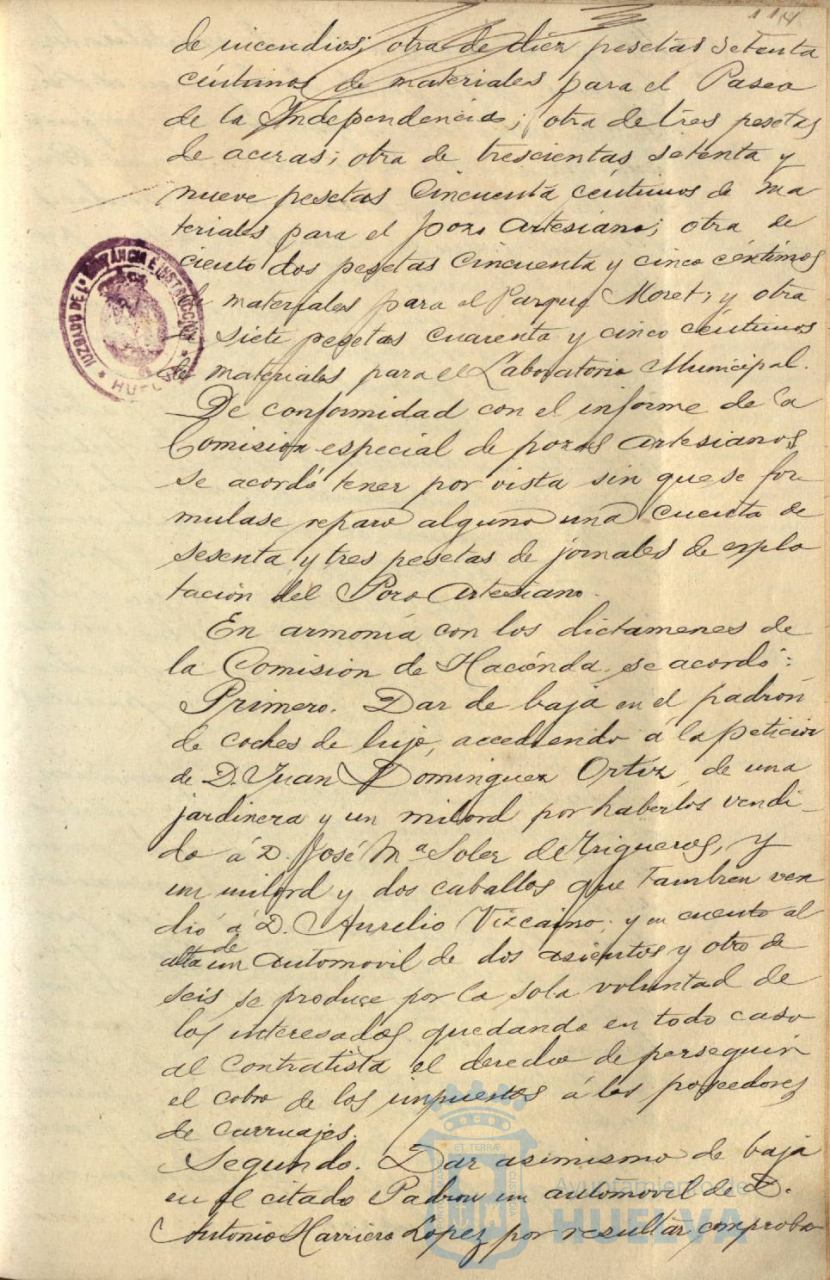 114
de incendios; otra de diez pesetas setenta
céntimos de materiales para el Paseo
de la Independencia; otra de tres pesetas
de aceras; otra de trescientas setenta y
nueve pesetas Cincuenta céntimos de ma
teriales para el pozo Artesiano; otra de
ciento dos pesetas Cincuenta y cinco céntimos
de materiales para el Parque Moret; y otra
siete pesetas cuarenta y cinco céntimos
de materiales para el Laboratorio Municipal.
De conformidad con el informe de la
Comisión especial de pozos Artesianos
se acordó tener por vista sin que se for
mulase reparo alguno una cuenta de
sesenta y tres pesetas de jornales de explo
tación del Pozo Artesiano.
En armonía con los dictamenes de
la Comisión de Hacienda se acordó:
Primero. Dar de baja en el padrón
de coches de lujo, accediendo á la petición
de D. Juan Dominguez Ortiz, de una
jardinera y un milord por haberlos vendi-
do á D. José Mª Soler de Trigueros, y
un milord y dos caballos que tambien ven
dió á D. Aurelio Vizcaino; y en cuento al
alta de un Automovil de dos asientos y otro de
seis se produce por la sola voluntad de
los interesados quedando en todo caso
al Contratista el derecho de perseguir
el cobro de los impuestos á los poseedores
de carruajes.
Segundo. Dar asimismo de baja
en el citado Padron un automovil de D.
Antonio Harriero Lopez por resultar comproba
JUZGADO DE 1ª INSTANCIA E INSTRUCCIÓN
* HUELVA *
Ayuntamiento de
HUELVA